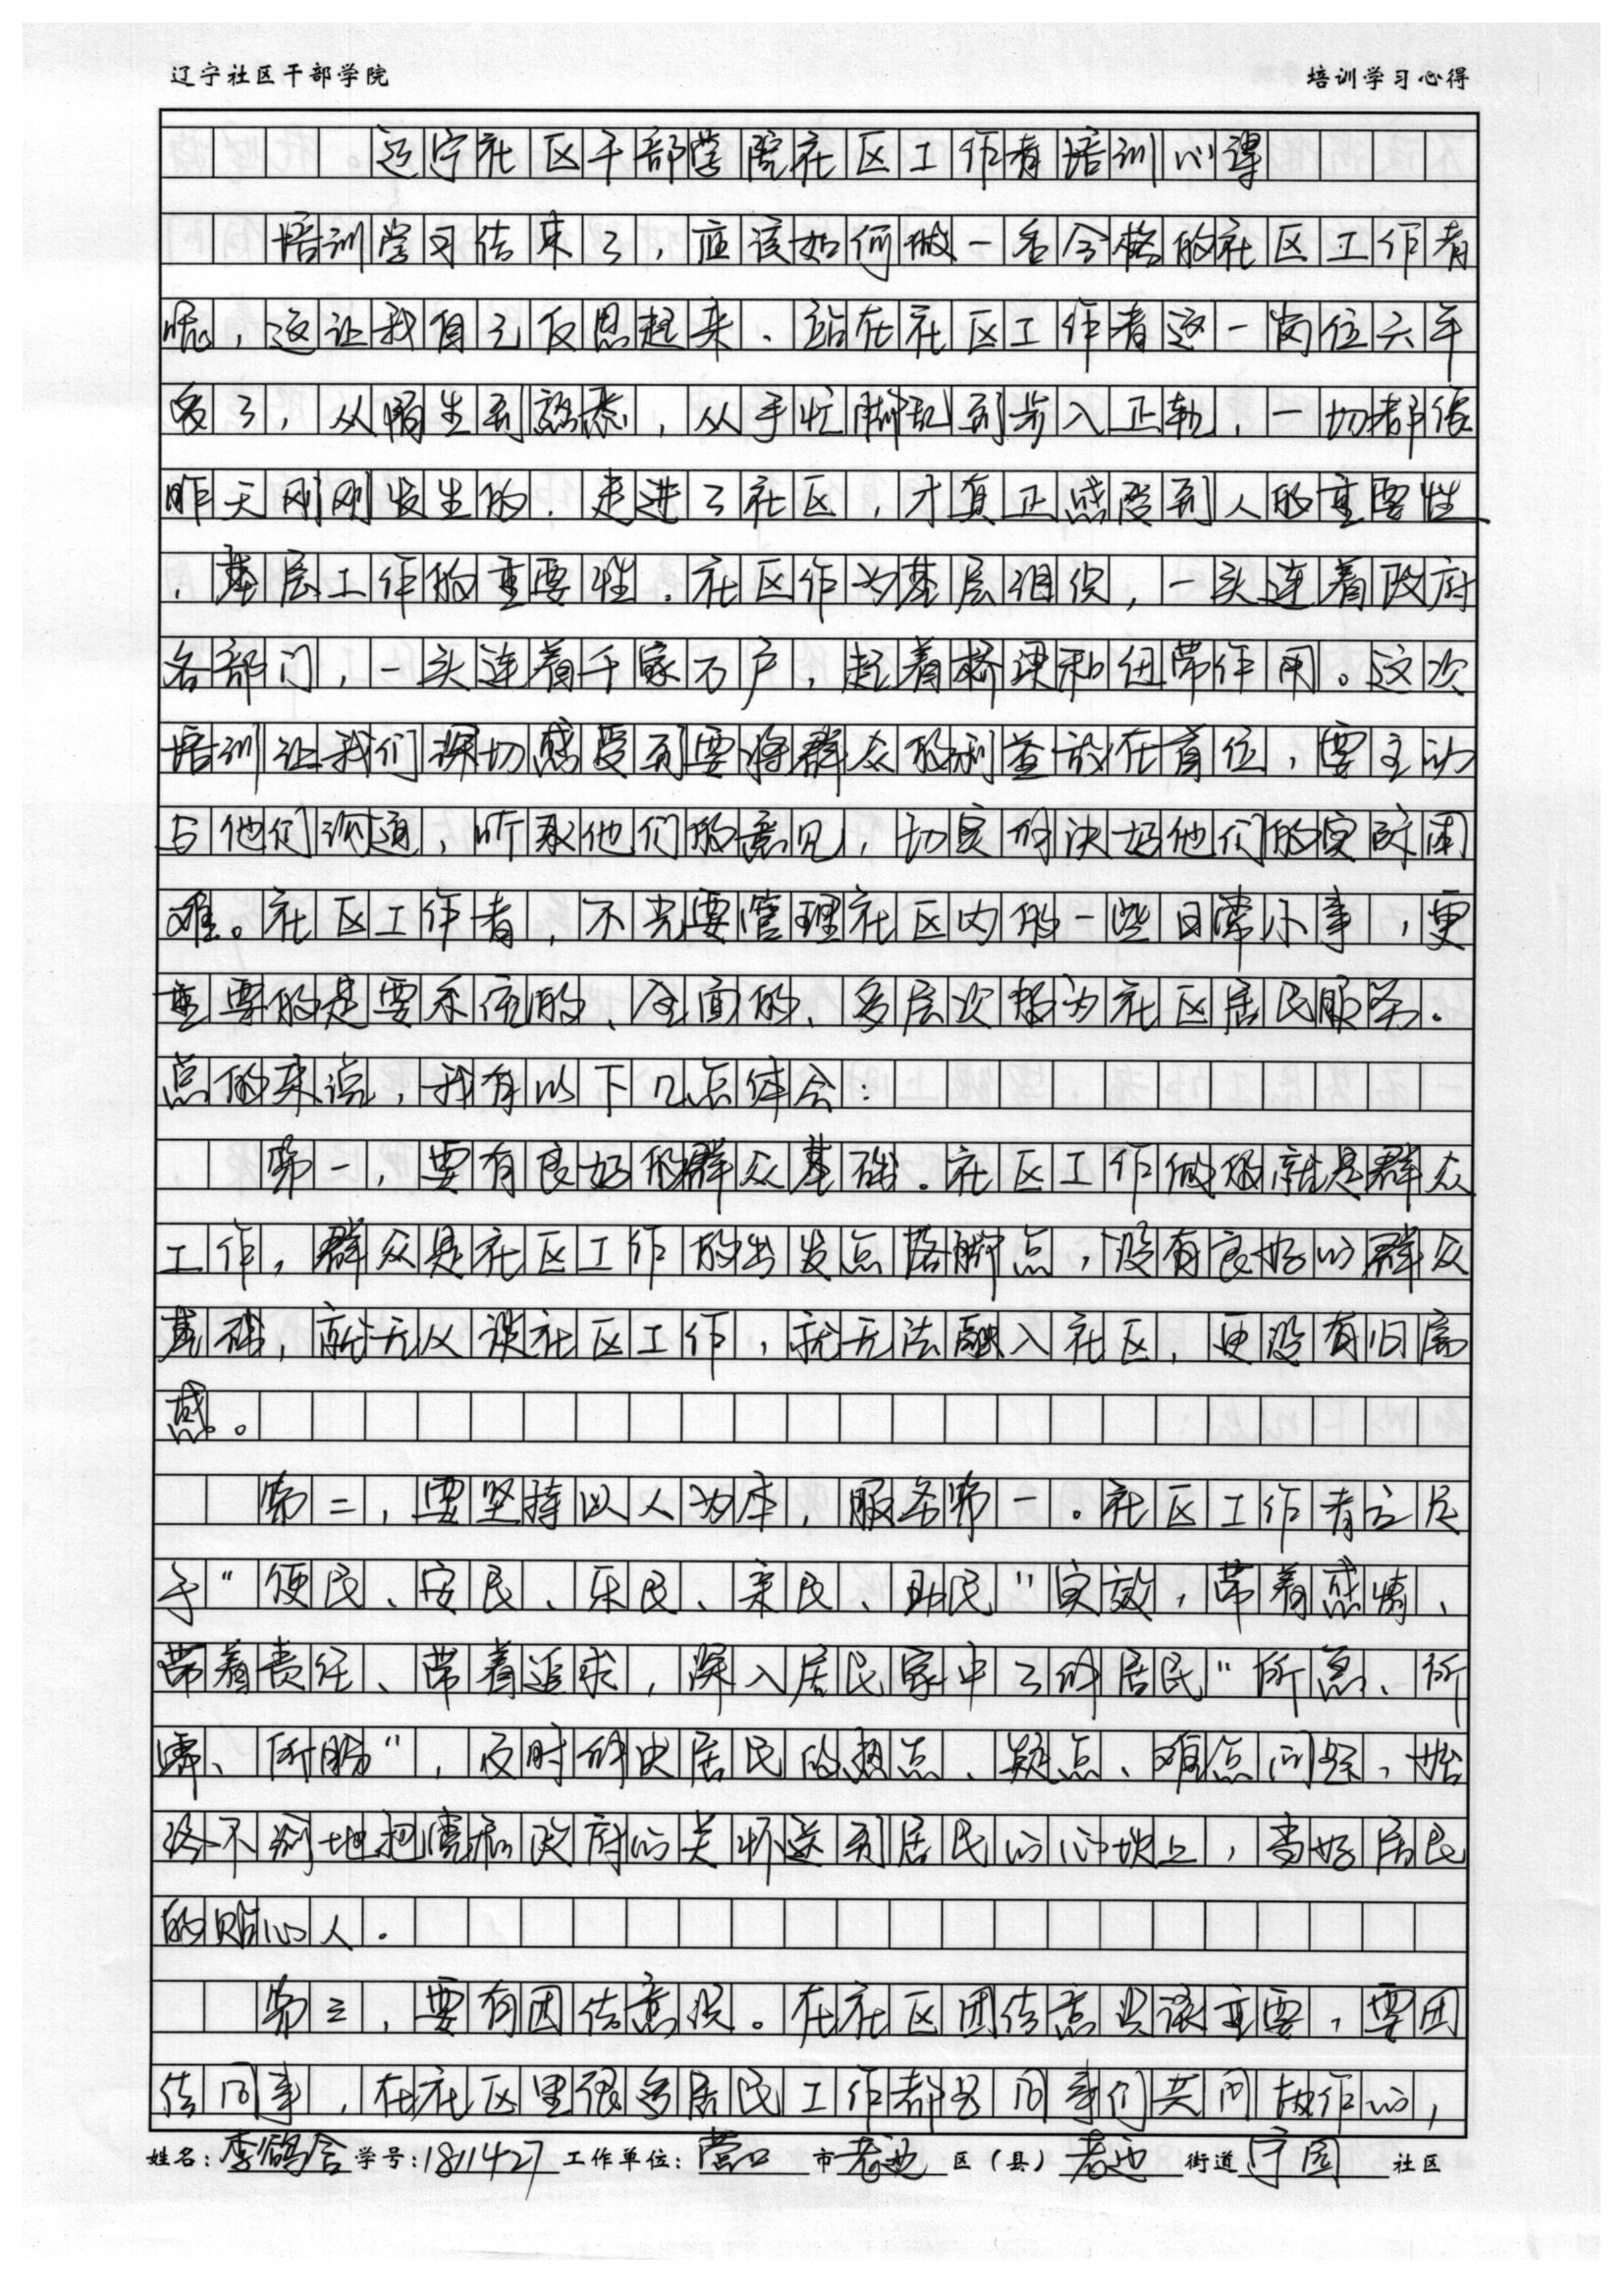 辽宁社区干部学院
培训学习心得
辽宁社区干部学院社区工作者培训心得
培训学习结束了，应该如何做一名合格的社区工作者
呢，这让我自己反思起来．站在社区工作者这一岗位六年
多了，从陌生到熟悉，从手忙脚乱到步入正轨，一切都像
昨天刚刚发生的．走进了社区，才真正感受到人的重要性
．基层工作的重要性．社区作为基层组织，一头连着政府
各部门，一头连着千家万户，起着桥梁和纽带作用。这次
培训让我们深切感受到要将群众的利益放在首位，要主动
与他们沟通，听取他们的意见，切实解决好他们的实际困
难。社区工作者，不光要管理社区内的一些日常小事，更
重要的是要系统的、全面的、多层次的为社区居民服务．
总的来说，我有以下几点体会：
第一，要有良好的群众基础。社区工作做的就是群众
工作，群众是社区工作的出发点落脚点，没有良好的群众
基础，就无从谈社区工作，就无法融入社区，更没有归属
感。
第二，要坚持以人为本，服务第一。社区工作者立足
于“便民、安民、乐民、亲民、助民”实效，带着感情、
带着责任、带着追求，深入居民家中了解居民“所急、所
需、所盼”，及时解决居民的热点、疑点、难点问题，始
终不渝地把党和政府的关怀送到居民的心坎上，当好居民
的贴心人．
第三，要有团结意识。在社区团结意识很重要，要团
结同事，在社区里很多居民工作都是同事们共同协作的，
姓名：李鸽含 学号：1811427 工作单位：营口 市 老边 区（县） 老边 街道 守园 社区